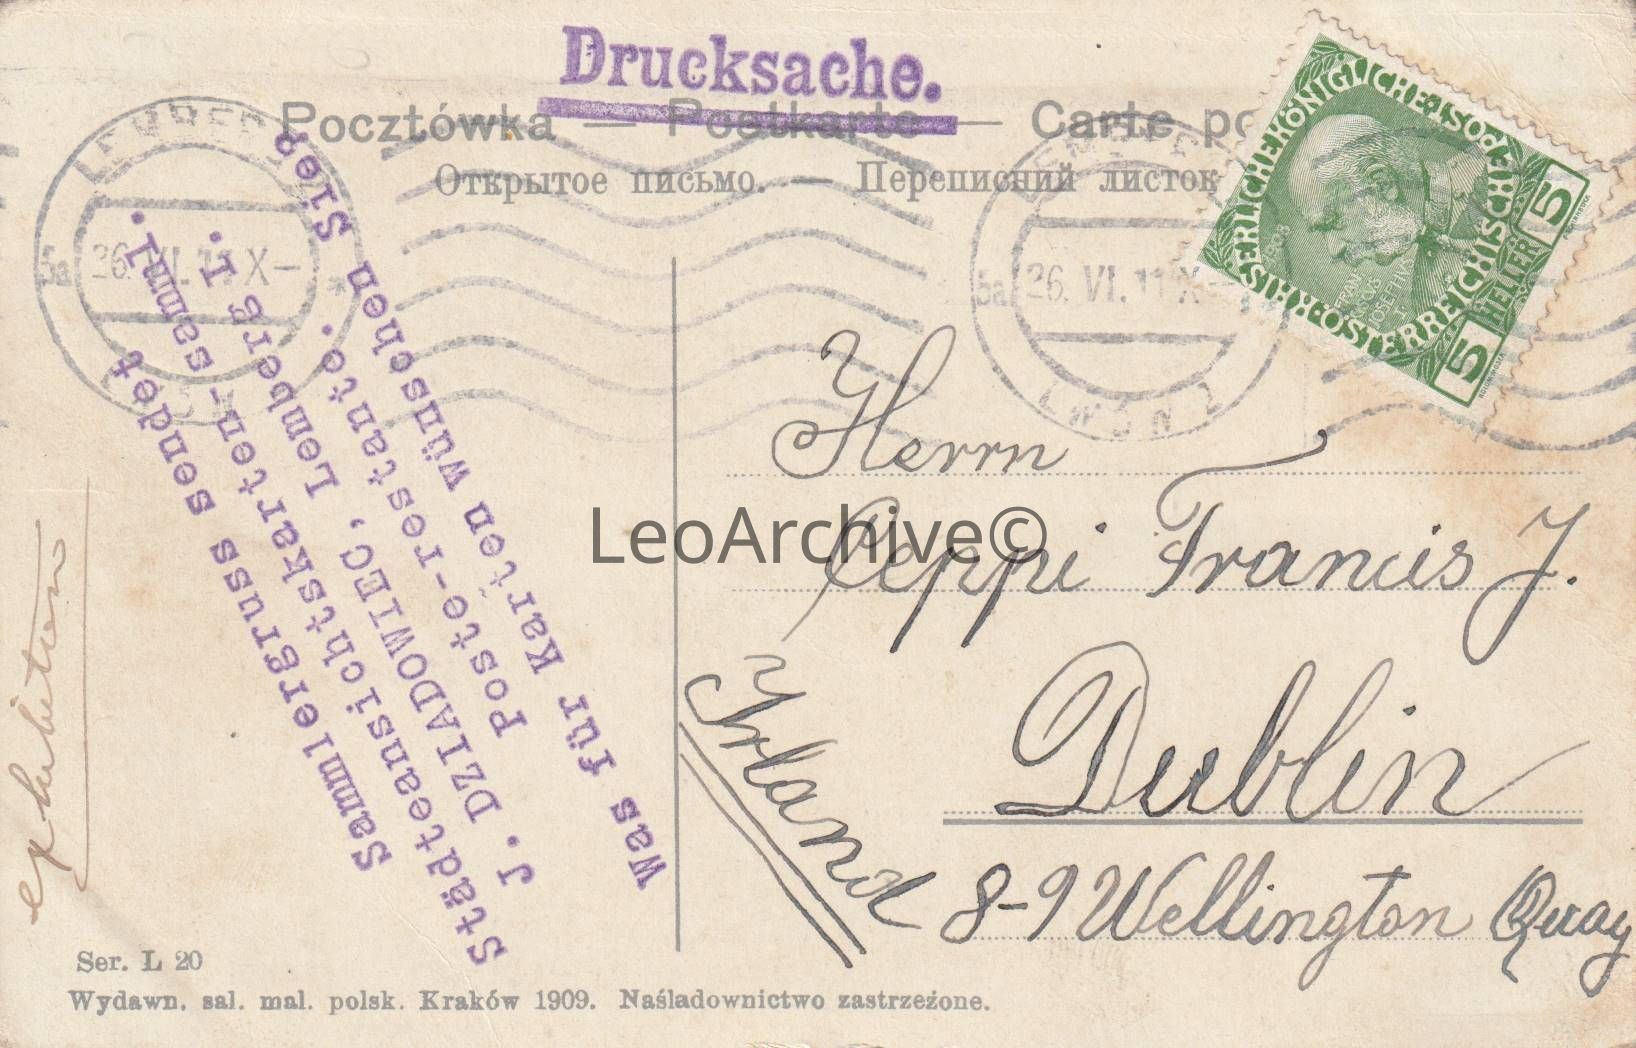 Drucksache.
Pocztówka — Postkarte — Carte po
Открытое письмо. — Переписний листок
LEMBERG
5a 26. VI. 11 X — *
LWÓW 1
LEMBERG
5a 26. VI. 11 X —
LWÓW 1
KAISERLICHEKÖNIGLICHE POST
ÖSTERREICHISCHE
FRANZ
JOSEPH I
1908
5 HELLER 5
Sammlergruss sendet
Städteansichtskarten-samml.
J. DZIADOWIEC, Lemberg I.
Poste-restante.
Was für Karten wünschen Sie?
Herrn
Peppi Francis J.
Dublin
Irland
8-9 Wellington Quay
LeoArchive©
Ser. L 20
Wydawn. sal. mal. polsk. Kraków 1909. Naśladownictwo zastrzeżone.